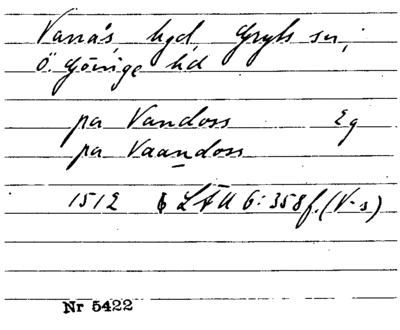 Vanås, hgd, Gryts sn,
Ö. Göinge hd
pa Vandoss Eg
pa Vaandoss
1512 LÄU 6:358f. (V-s)
Nr 5422